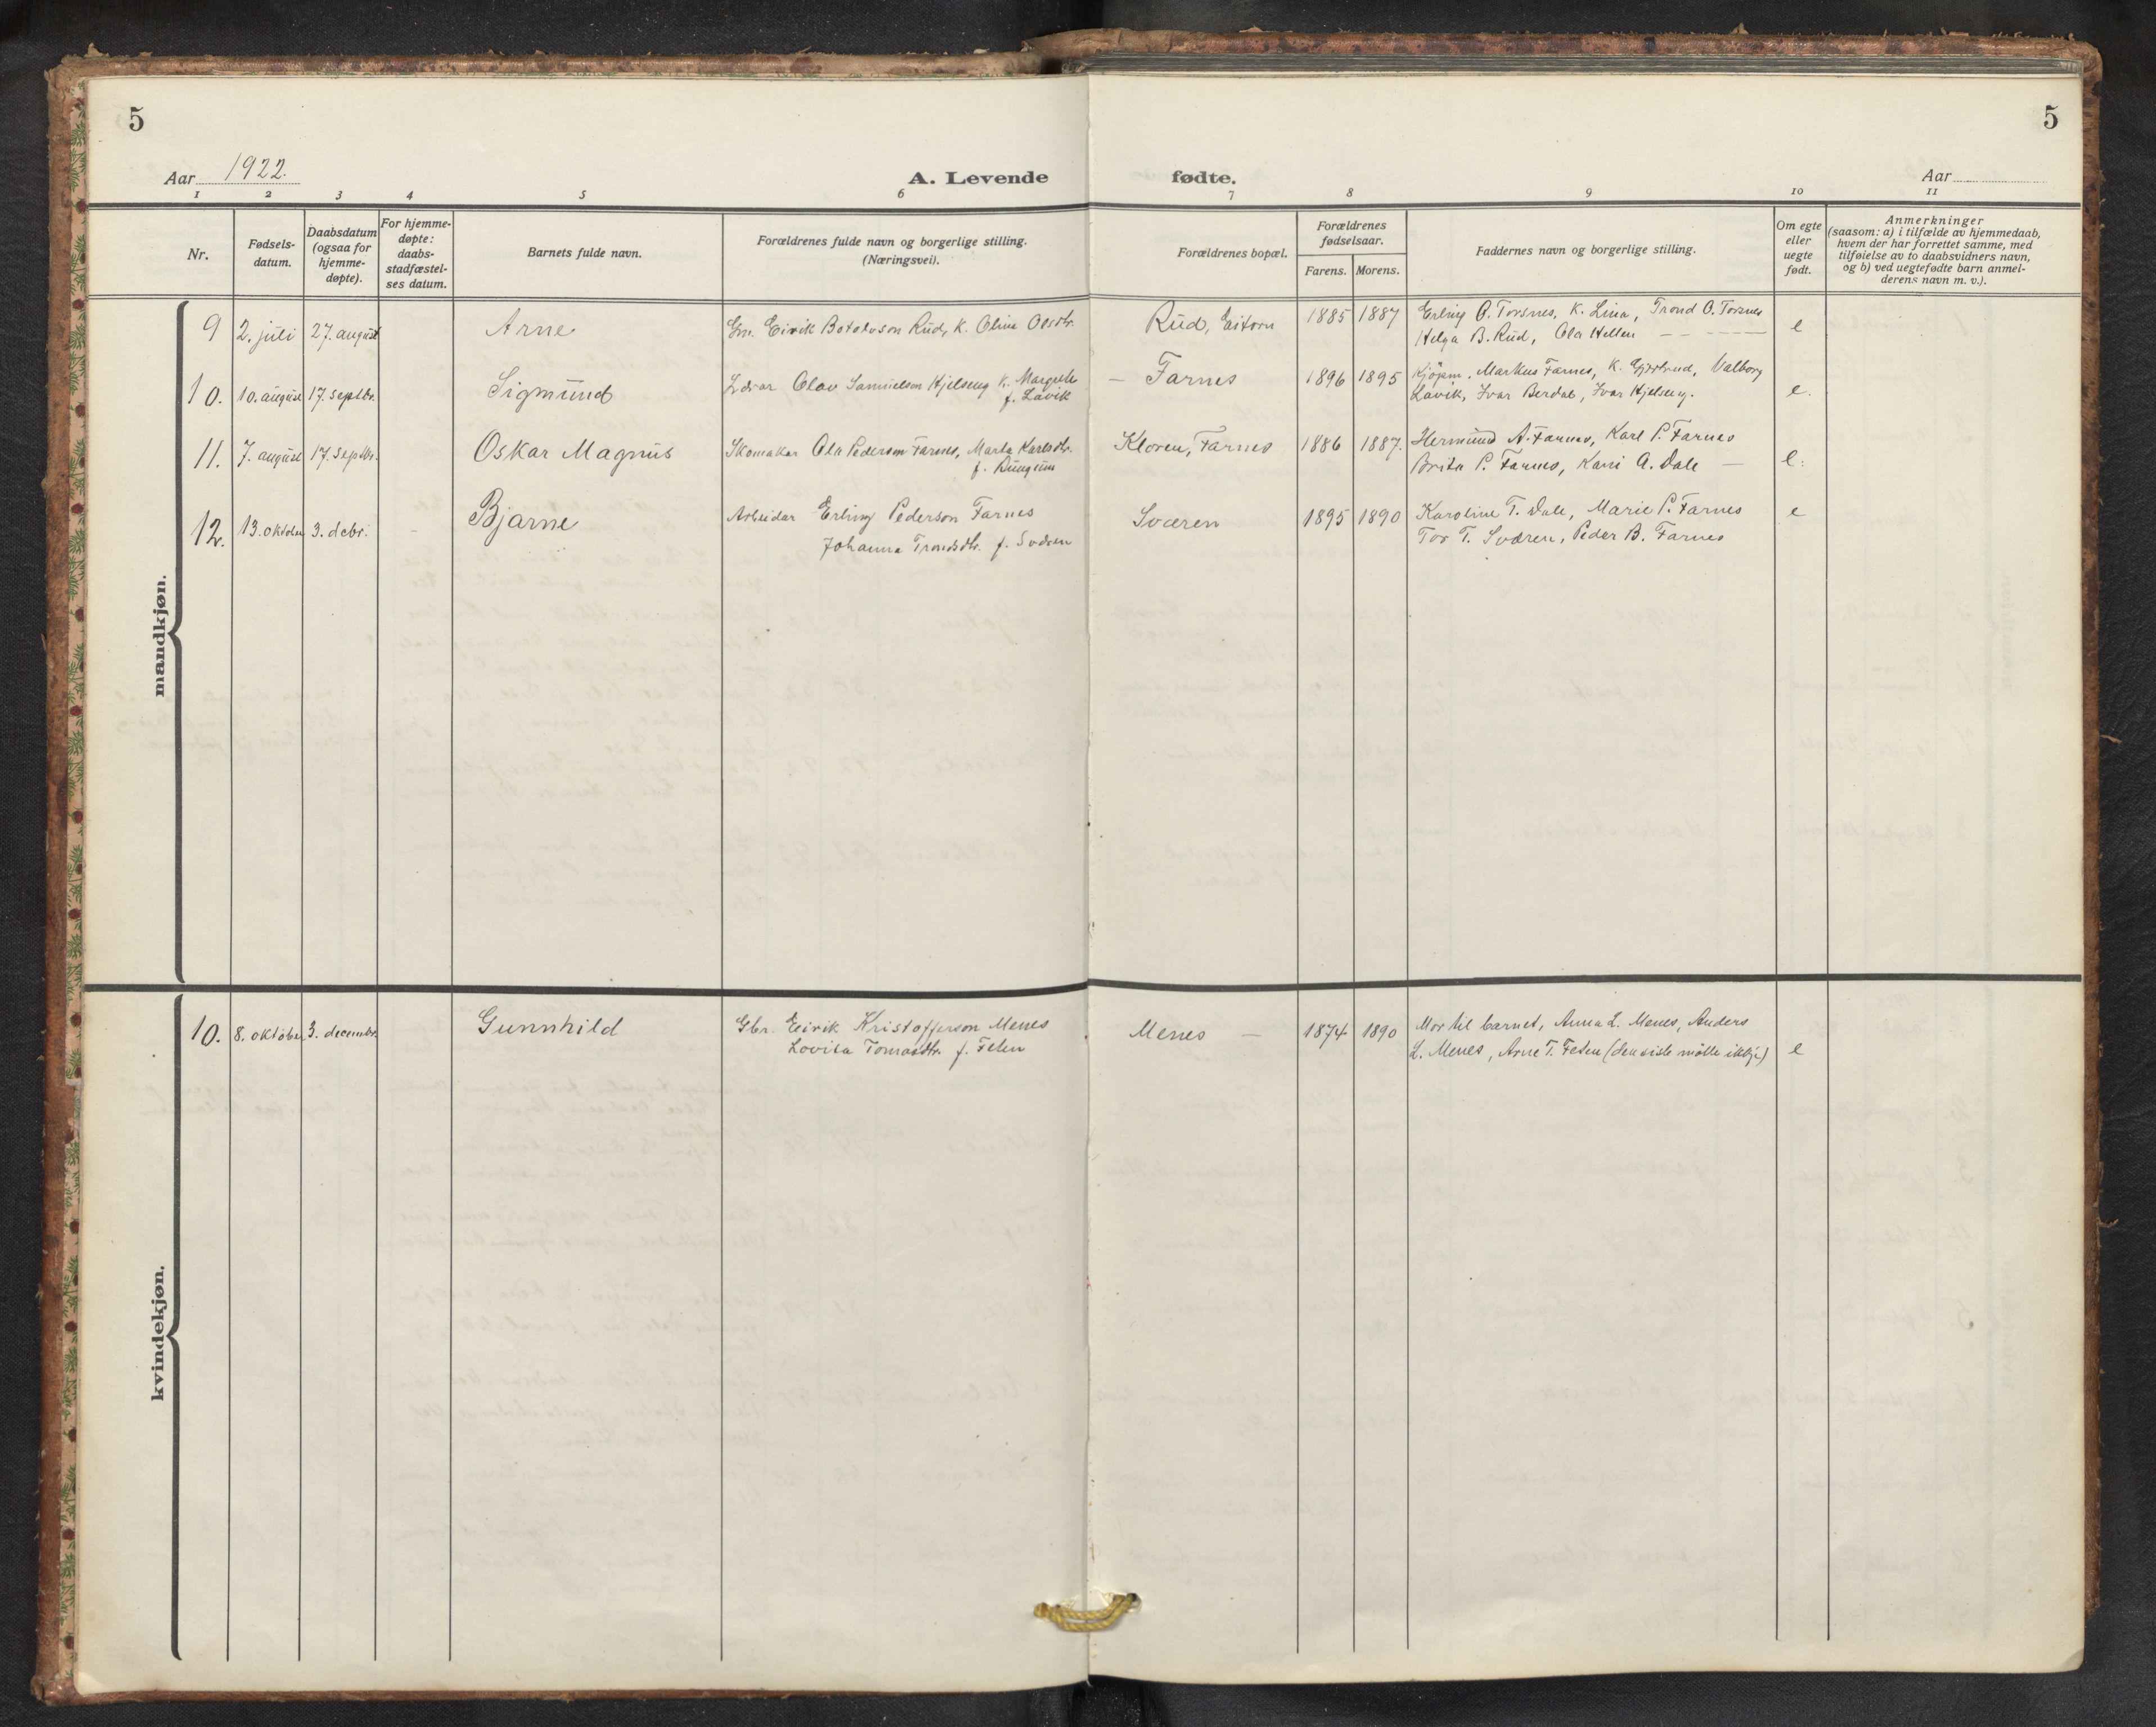 5
5
Aar 1922.
A. Levende
fødte.
Aar
1 2 3 4 5 6 7 8 9 10 11
Nr.
Fødsels-
datum.
Daabsdatum
(ogsaa for
hjemme-
døpte).
For hjemme-
døpte:
daabs-
stadfæstel-
ses datum.
Barnets fulde navn.
Forældrenes fulde navn og borgerlige stilling.
(Næringsvei).
Forældrenes bopæl.
Forældrenes
fødselsaar.
Farens. Morens.
Faddernes navn og borgerlige stilling.
Om egte
eller
uegte
født.
Anmerkninger
(saasom: a) i tilfælde av hjemmedaab,
hvem der har forrettet samme, med
tilføielse av to daabsvidners navn,
og b) ved uegtefødte barn anmel-
derens navn m. v.).
mandkjøn.
9 2. juli 27. august Arne Gm. Eirik Botolvson Rud, K. Olina Olsdtr. Rud, 1885 1887 Erling O. Torsnes, K. Lina, Trond O. Torsnes
Helga B. Rud, Ola Hellen — — e
10. 10. august 17. septbr. Sigmund Lærar Olav Samuelson Hjelseng K. Margrete — Farnes 1896 1895 Kjøpm. Markus Farnes, K. Gjertrud, Valborg
f. Lavik Lavik, Ivar Berdal, Ivar Hjelseng. e.
11. 7. august 17. septbr. Oskar Magnus Skomakar Ola Pederson Farnes, Marta Karlsdtr. Kloren, Farnes 1886 1887. Hermund A. Farnes, Karl P. Farnes
f. Brita P. Farnes, Kari A. Dale — e.
12. 13. oktober 3. debr. Bjarne Arbeidar Erling Pederson Farnes Sværen 1895 1890 Karoline T. Dale, Marie P. Farnes e
Johanna Trondsdtr. f. Sværen Tor T. Sværen, Peder B. Farnes
kvindekjøn.
10. 8. oktober 3. decembr. Gunnhild Gbr. Eirik Kristofferson Menes Menes — 1874 1890 Mor til barnet, Anna L. Menes, Anders
Lovisa Tomasdtr. f. Feten L. Menes, Arne T. Feten (den siste møtte ikkje) e